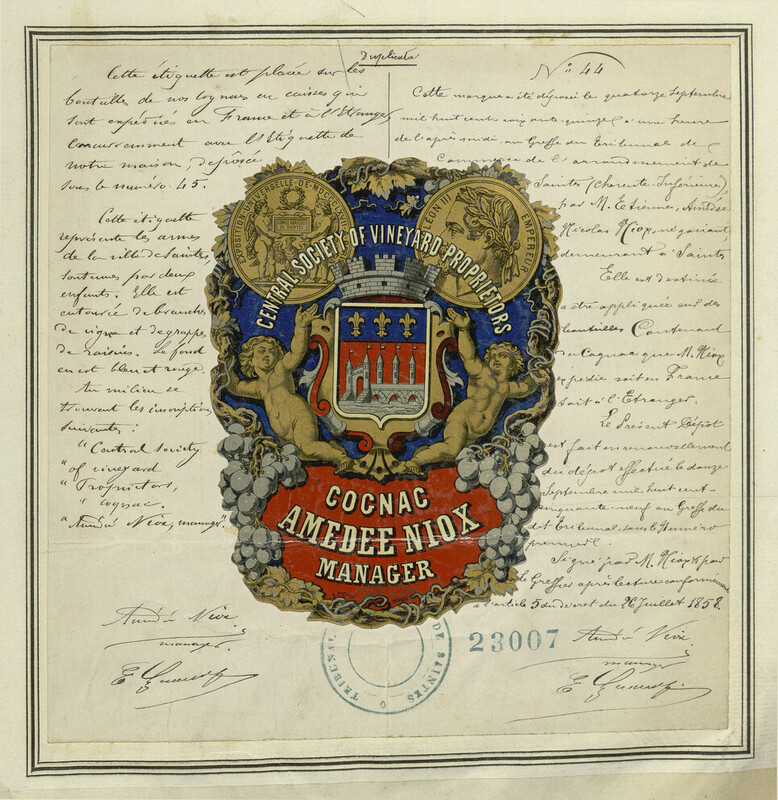 Duplicata
Cette étiquette est placée sur les
bouteilles de nos cognacs en caisses qui
sont expédiées en France et à l'Etranger
concurremment avec l'Etiquette de
notre maison, déposée
sous le numéro 45.
Cette étiquette
représente les armes
de la ville de Saintes,
soutenues par deux
enfants. Elle est
entourée de branches
de vigne et de grappes
de raisins. Le fond
en est bleu et rouge.
Au milieu se
trouvent les inscriptions
suivantes :
"Central society
"of vineyard
"Proprietors,
"cognac.
"Amédée Niox, manager.
Amédée Niox
manager.
N° 44
Cette marque a été déposée le quatorze Septembre
mil huit cent soixante-quinze à une heure
de l'après midi, au Greffe du tribunal de
Commerce de l'arrondissement de
Saintes (Charente-Inférieure),
par M. Etienne, Amédée
Nicolas Niox, négociant,
demeurant à Saintes
Elle est destinée
à être appliquée sur des
bouteilles Contenant
du Cognac que M. Niox
expédie soit en France
soit à l'Etranger.
Le Présent Dépôt
est fait en renouvellement
du dépôt effectué le douze
Septembre mil huit cent-
cinquante-neuf au Greffe du
dit tribunal sous le Numéro
premier.
Signé par M. Niox & par
le Greffier après lecture conformément
à l'article 5 du décret du 26 Juillet 1858.
Amédée Niox
manager
EXPOSITION UNIVERSELLE DE
LEON III EMPEREUR
CENTRAL SOCIETY OF VINEYARD PROPRIETORS
COGNAC
AMEDEE NIOX
MANAGER
TRIBUNAL DE SAINTES
23007